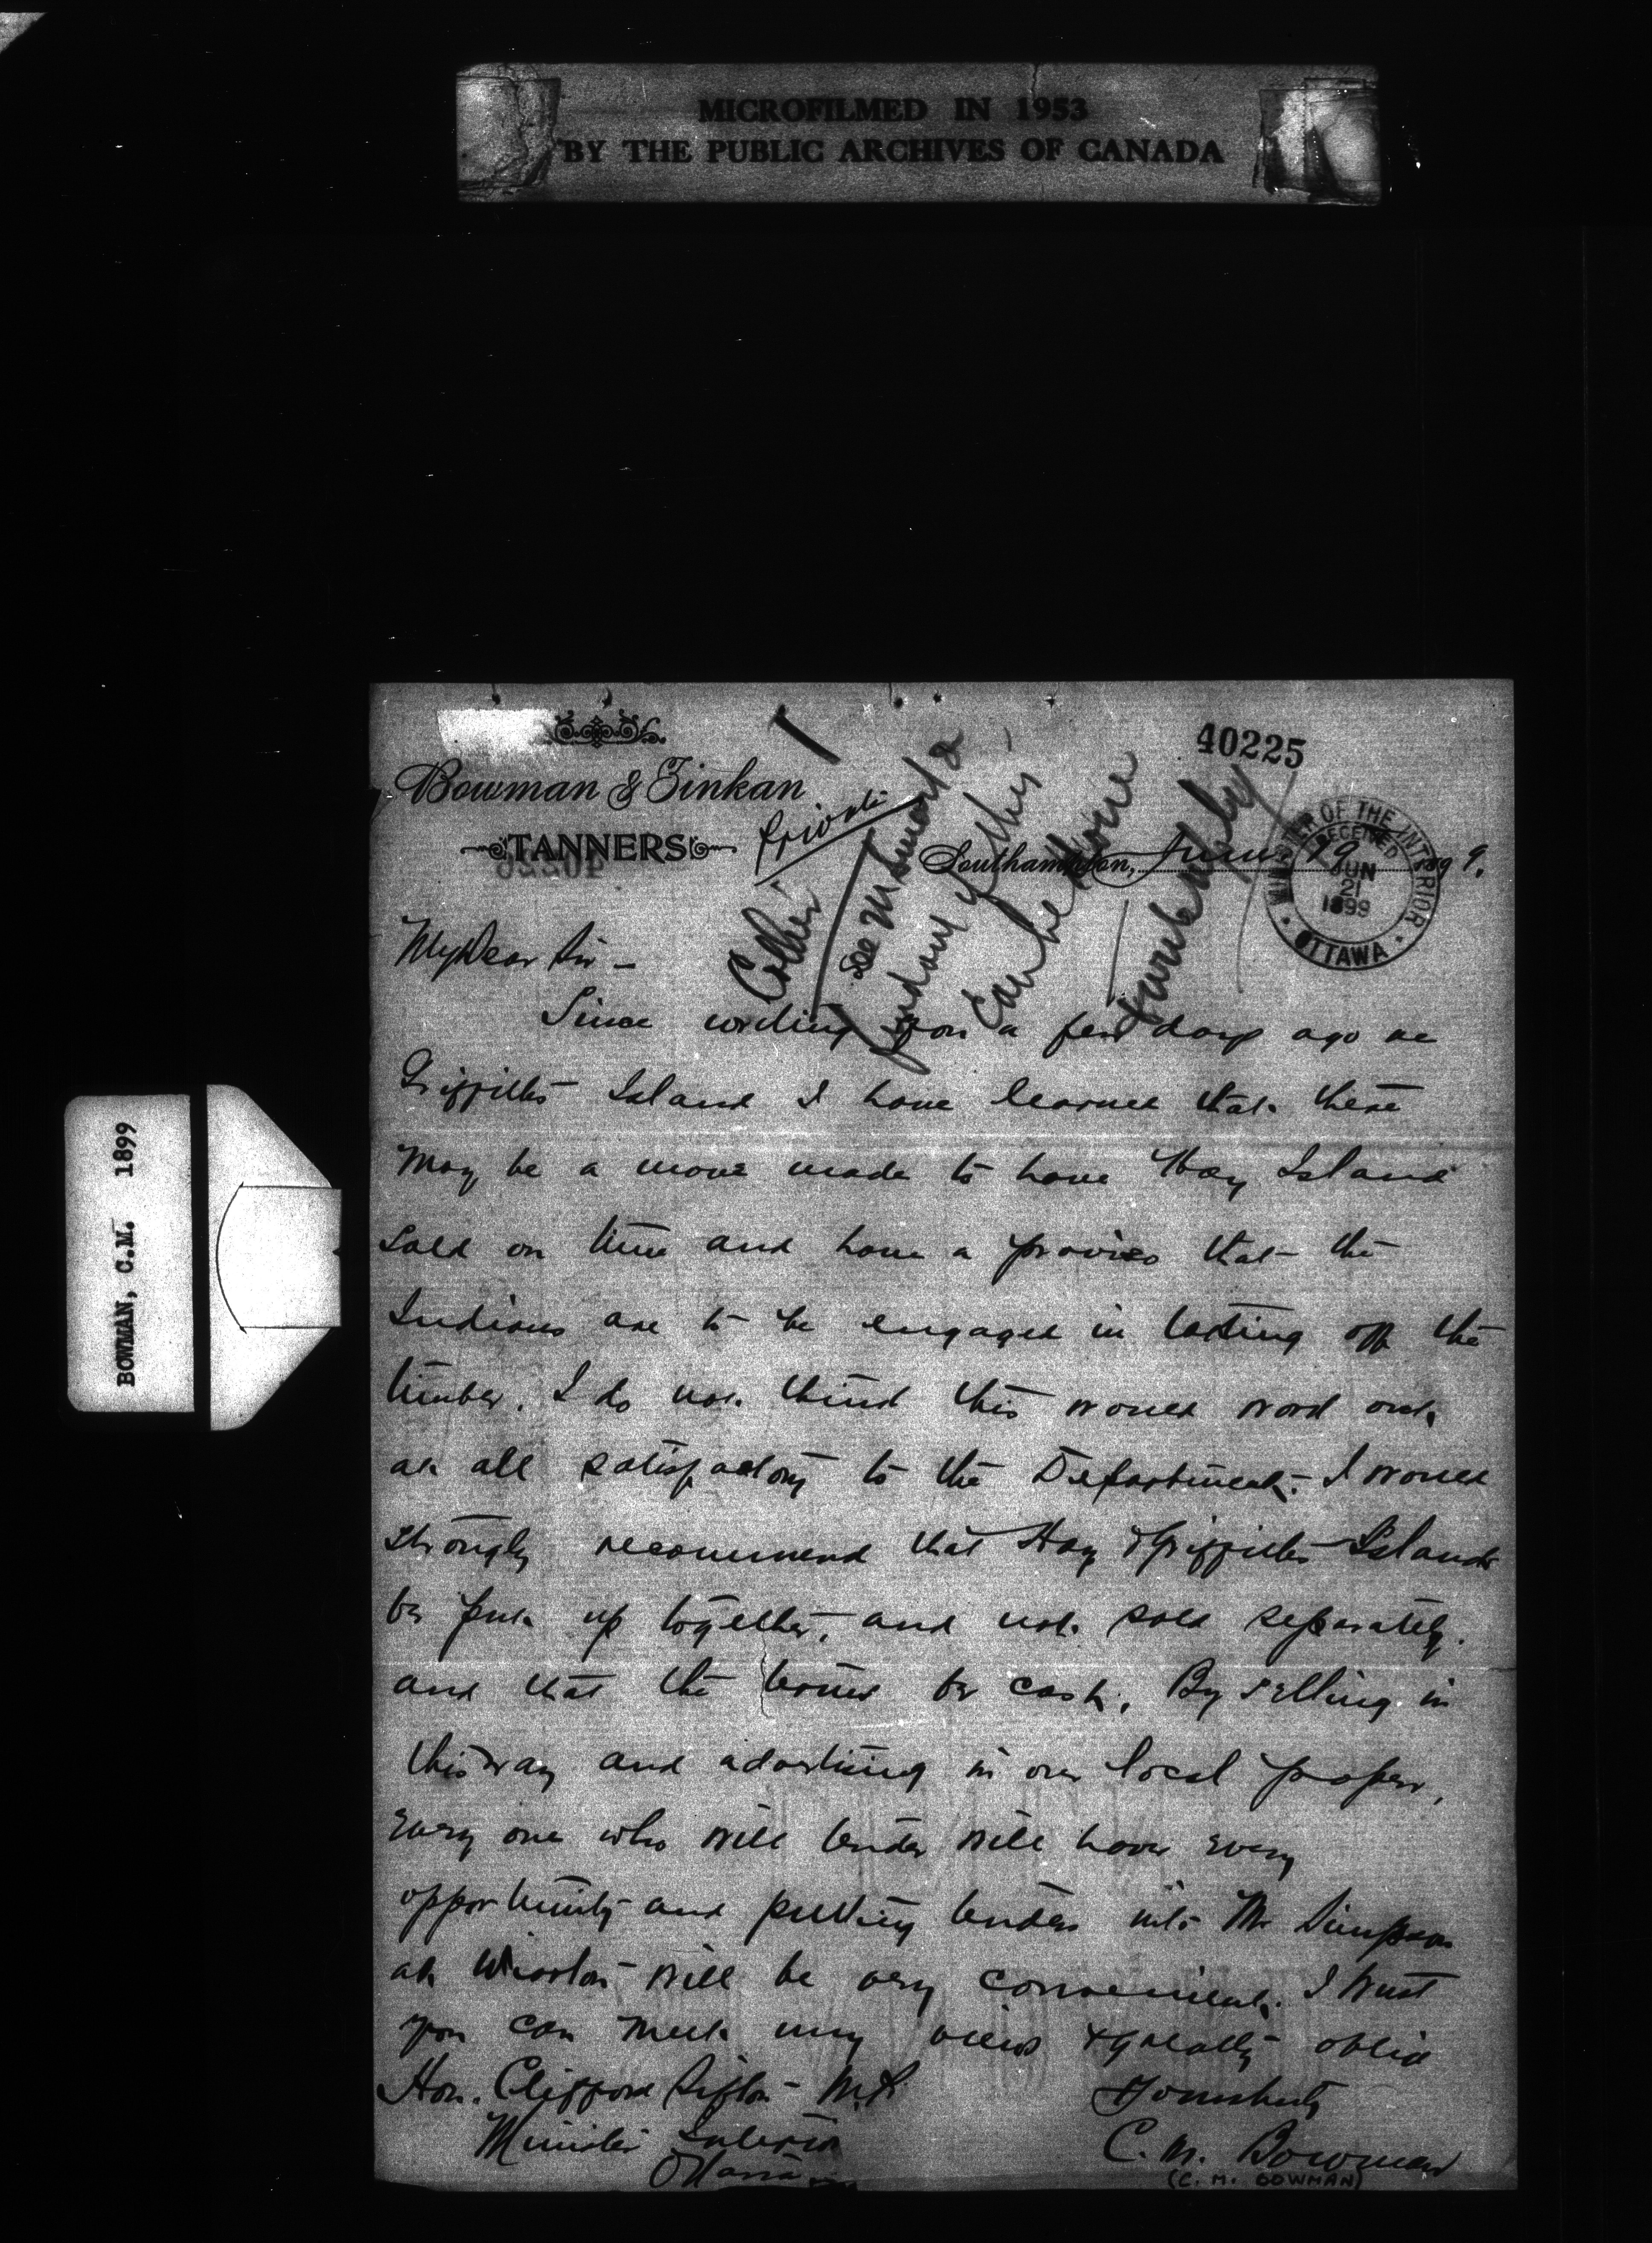 MICROFILMED IN 1953
BY THE PUBLIC ARCHIVES OF CANADA
BOWMAN, C.M. 1899
40225
Bowman & Zinkan
TANNERS
Private
Southampton, June 19 1899.
MINISTER OF THE INTERIOR
RECEIVED
JUN
21
1899
OTTAWA
My Dear Sir –
Since writing you a few days ago re
Griffiths Island I have learned that there
may be a move made to have Hay Island
sold on time and have a proviso that the
Indians are to be engaged in taking off the
timber. I do not think this would work out
at all satisfactory to the Department. I would
strongly recommend that Hay & Griffiths Islands
be put up together, and not sold separately.
and that the terms be cash. By selling in
this way and advertising in our local papers,
every one who will tender will have every
opportunity and putting tenders into Mr Simpson
at Wiarton will be very convenient. I trust
you can meet my views & greatly oblige
Hon. Clifford Sifton M.P.
Minister Interior
Ottawa
Yours truly
C. M. Bowman
(C. M. BOWMAN)